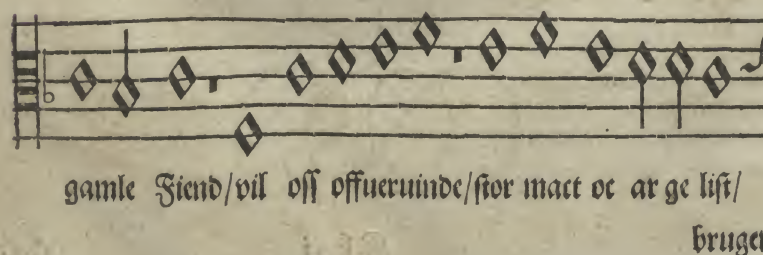 gamle Fiend/vil oss offueruinde/stor mact oc ar ge list/
bruger